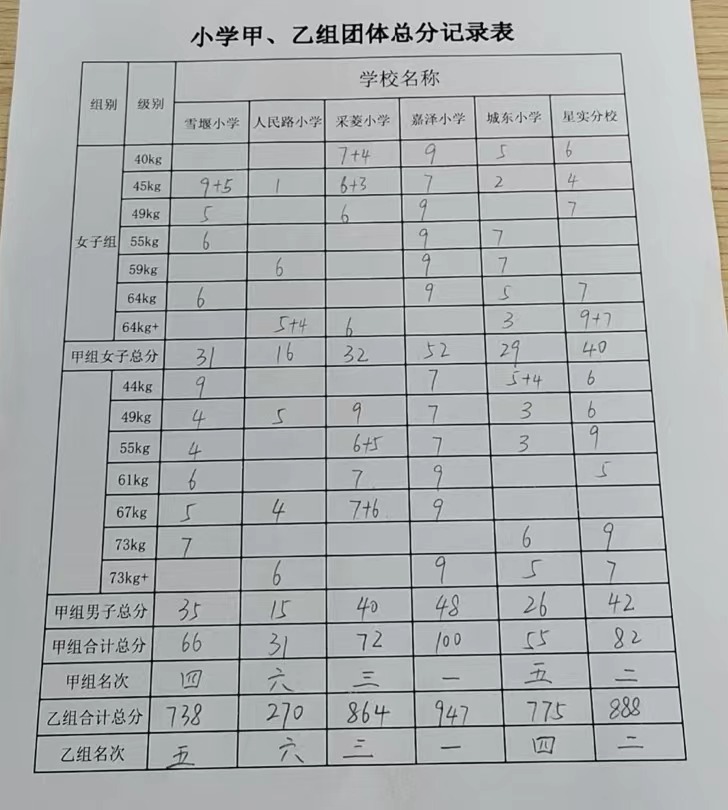 小学甲、乙组团体总分记录表
组别 级别 学校名称
雪堰小学 人民路小学 采菱小学 嘉泽小学 城东小学 星实分校
女子组
40kg 7+4 9 5 6
45kg 9+5 1 6+3 7 2 4
49kg 5 6 9 7
55kg 6 9 7
59kg 6 9 7
64kg 6 9 5 7
64kg+ 5+4 6 3 9+7
甲组女子总分 31 16 32 52 29 40
44kg 9 7 5+4 6
49kg 4 5 9 7 3 6
55kg 4 6+5 7 3 9
61kg 6 7 9 5
67kg 5 4 7+6 9
73kg 7 6 9
73kg+ 6 9 5 7
甲组男子总分 35 15 40 48 26 42
甲组合计总分 66 31 72 100 55 82
甲组名次 四 六 三 一 五 二
乙组合计总分 738 270 864 947 775 888
乙组名次 五 六 三 一 四 二